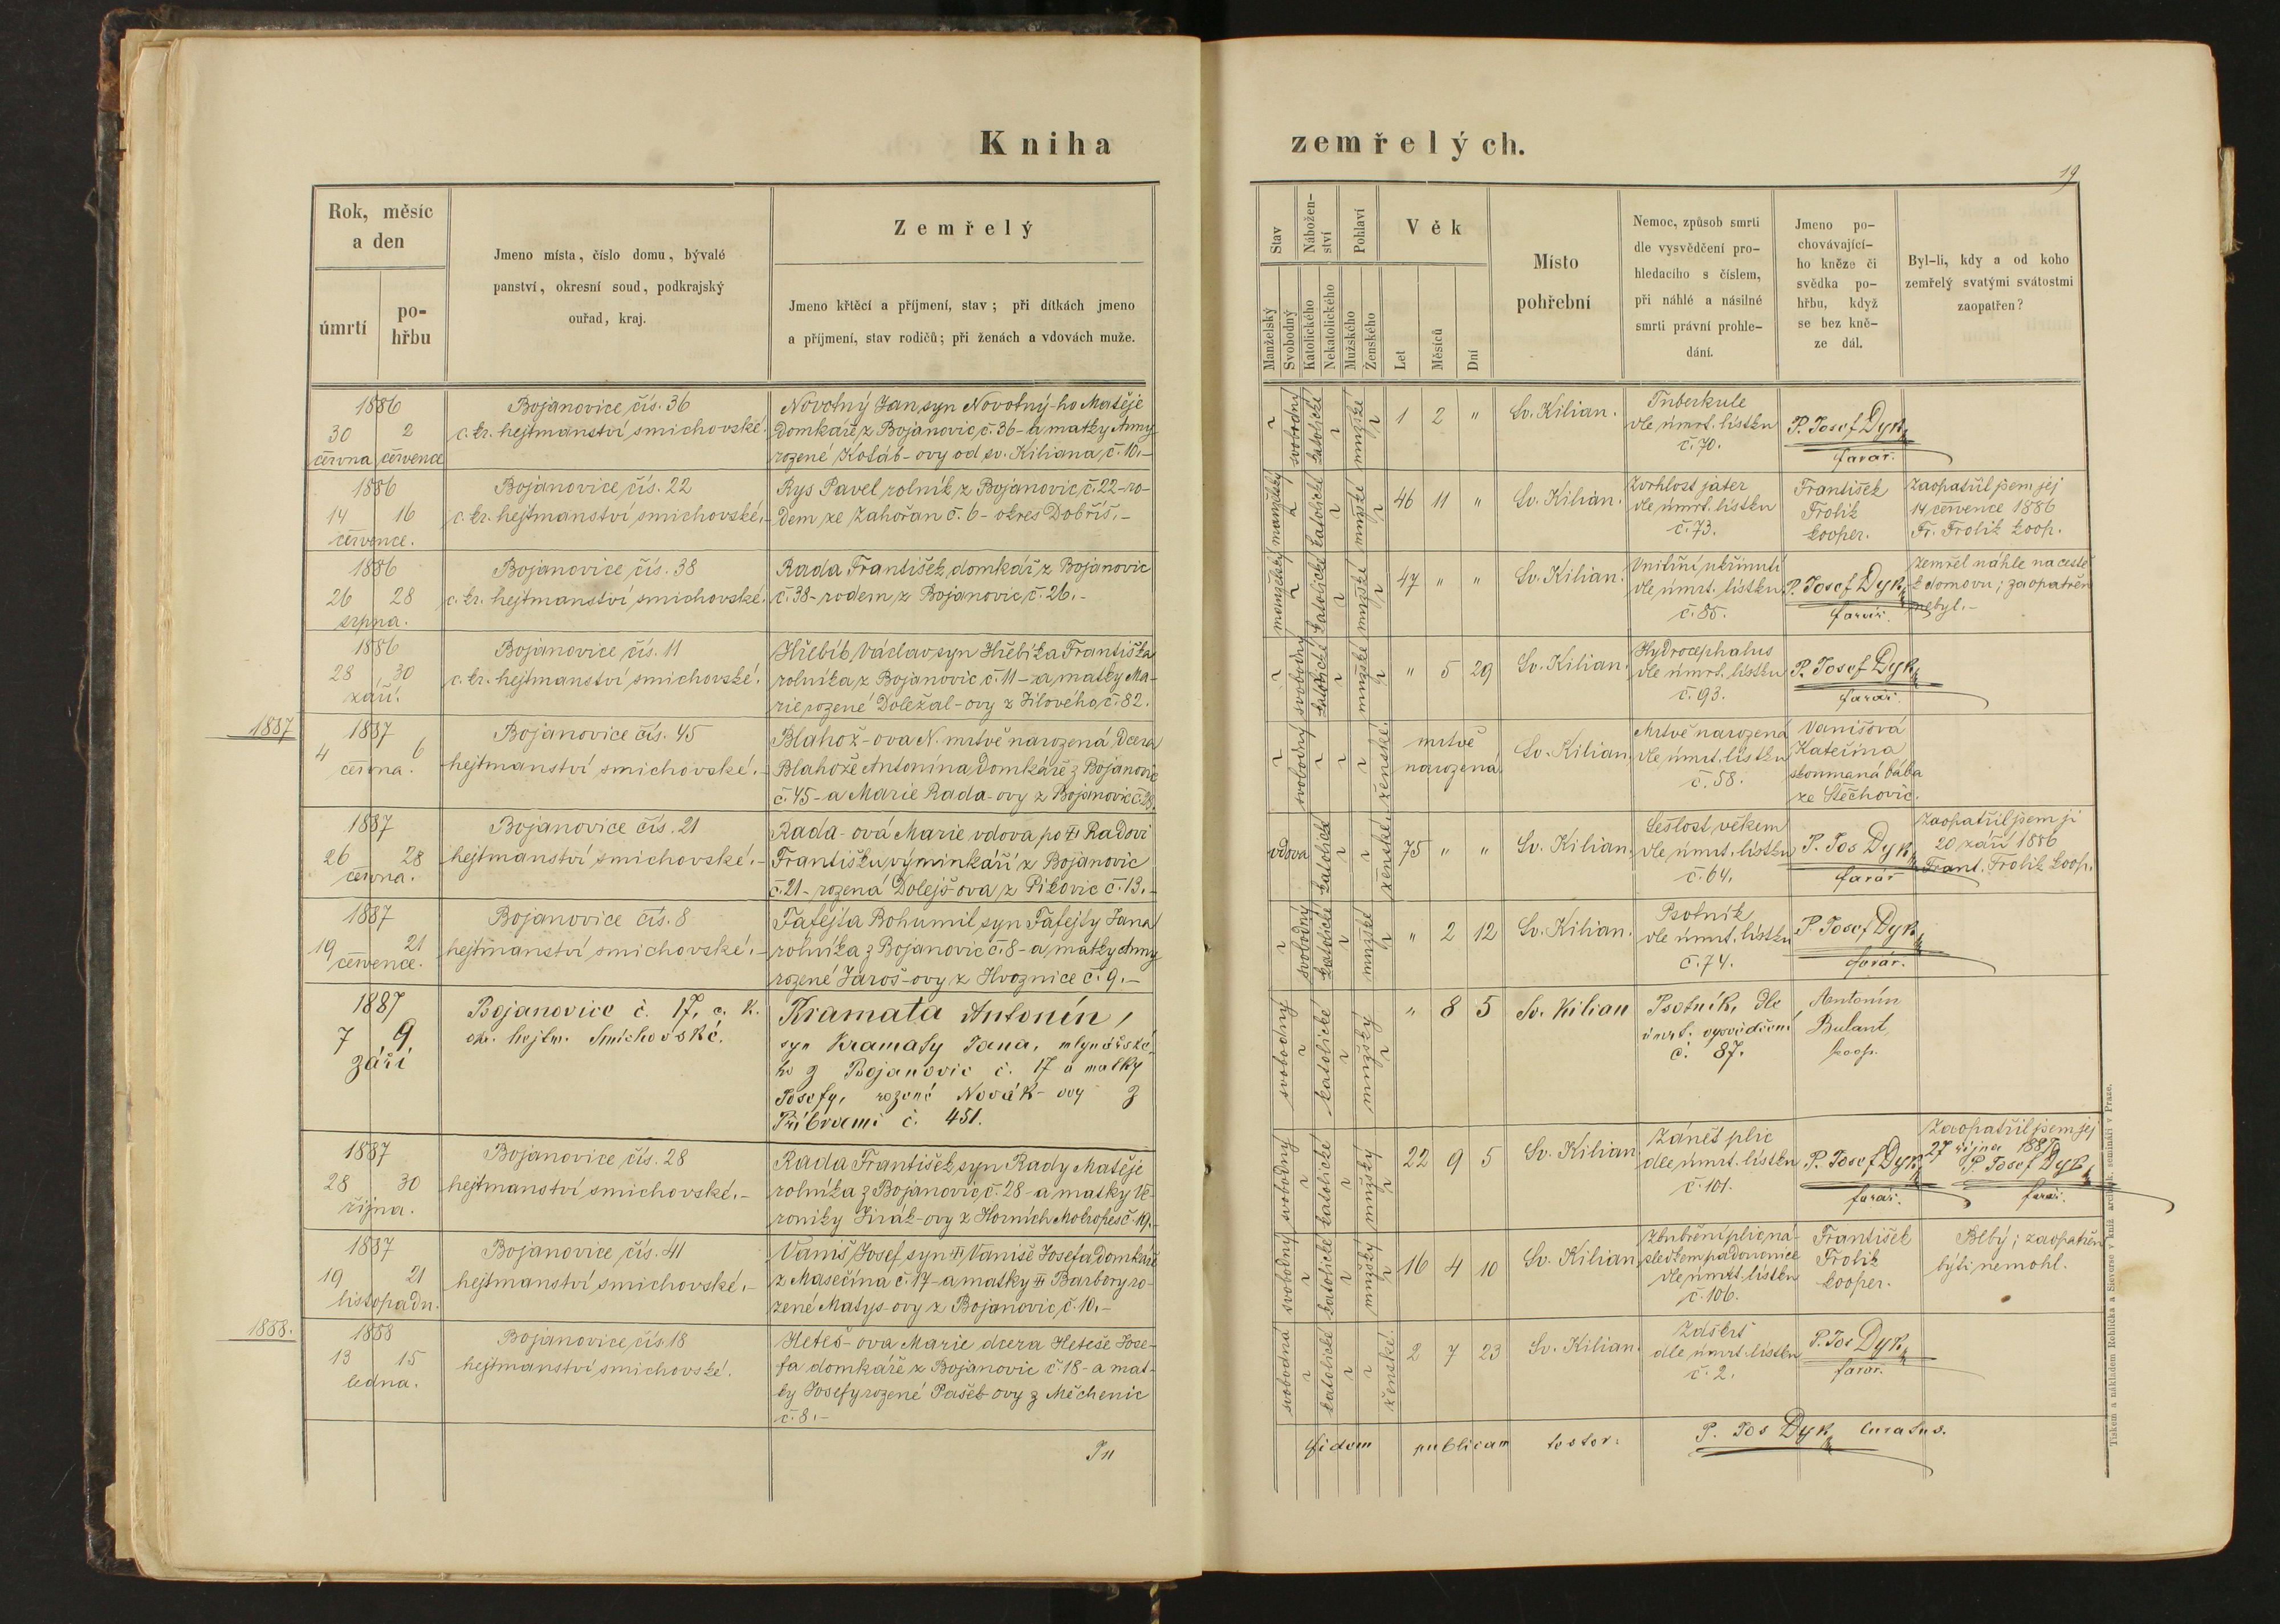 Kniha
zemřelých.
19
Rok, měsíc
a den
úmrtí
po-
hřbu
Jmeno místa, číslo domu, bývalé
panství, okresní soud, podkrajský
ouřad, kraj.
Zemřelý
Jmeno křtěcí a příjmení, stav; při dítkách jmeno
a příjmení, stav rodičů; při ženách a vdovách muže.
Stav
Manželský
Svobodný
Nábožen-
ství
Katolického
Nekatolického
Pohlaví
Mužského
Ženského
Věk
Let
Měsíců
Dní
Místo
pohřební
Nemoc, způsob smrti
dle vysvědčení pro-
hledacího s číslem,
při náhlé a násilné
smrti právní prohle-
dání.
Jmeno po-
chovávající-
ho kněze či
svědka po-
hřbu, když
se bez kně-
ze dál.
Byl-li, kdy a od koho
zemřelý svatými svátostmi
zaopatřen?
1886
30 2
června července
Bojanovice čís. 36
c. kr. hejtmanství smichovské.
Novotný Jan, syn Novotný-ho Matěje
domkaře z Bojanovic č. 36 - a matky Anny
rozené Kotáb-ovy od sv. Kiliana, č. 10.-
svobodný
katolické
mužské
1 2 "
Sv. Kilian.
Tuberkule
dle úmrt. lístku
č. 70.
P. Josef Dyk
farář.
1886
14 16
července.
Bojanovice čís. 22
c. kr. hejtmanství smichovské.-
Rys Pavel rolník z Bojanovic, č. 22 - ro-
dem ze Zahořan č. 6 - okres Dobříš.-
manželský
katolické
mužské
46 11 "
Sv. Kilian.
Zvrhlost jater
dle úmrt. lístku
č. 73.
František
Frolík
kooper.
Zaopatřil jsem jej
14 července 1886
Fr. Frolík koop.
1886
26 28
srpna.
Bojanovice čís. 38
c. kr. hejtmanství smichovské.
Rada František, domkář z Bojanovic
č. 38 - rodem z Bojanovic, č. 26.-
manželský
katolické
mužské
47 " "
Sv. Kilian.
Vnitřní uštknutí
dle úmrt. lístku
č. 85.
P. Josef Dyk
farář.
Zemřel náhle na cestě
k domovu; zaopatřen
nebyl.-
1886
28 30
září.
Bojanovice čís. 11
c. kr. hejtmanství smichovské.
Hřebík Václav syn Hřebíka Františka
rolníka z Bojanovic č. 11 - za matky Ma-
rie rozené Doležal-ovy z Jílového, č. 82.
svobodný
katolické
mužské
" 5 29
Sv. Kilian.
Hydrocephalus
dle úmrt. lístku
č. 93.
P. Josef Dyk
farář.
1887
1887
4 6
června.
Bojanovice čís. 45
hejtmanství smichovské.-
Blahož-ova N. mrtvě narozená, dcera
Blahože Antonína domkáře z Bojanovic
č. 45 - a Marie Rada-ovy z Bojanovic č. 28.
svobodný
ženské.
mrtvě
narozená
Sv. Kilian.
Mrtvě narozená
dle úmrt. lístku
č. 58.
Vanišová
Kateřina
zkoumaná bába
ze Štěchovic.
1887
26 28
června.
Bojanovice čís. 21
hejtmanství smichovské.-
Rada-ová Marie vdova po Radovi
Františku, výminkáři z Bojanovic
č. 21 - rozená Dolejš-ova z Pikovic č. 13.-
vdova
katolické
ženské.
75 " "
Sv. Kilian.
Sešlost věkem
dle úmrt. lístku
č. 64.
P. Jos Dyk
farář
Zaopatřil jsem ji
20 září 1886
Frant. Frolík koop.
1887
19 21
července.
Bojanovice čís. 8
hejtmanství smichovské.-
Fafejta Bohumil, syn Fafejty Jana
rolníka z Bojanovic č. 8 - a matky Anny
rozené Jaroš-ovy z Hvoznice č. 9.-
svobodný
katolické
mužské
" 2 12
Sv. Kilian.
Psotník
dle úmrt. lístku
č. 74.
P. Josef Dyk
farář.
1887
7 9
září
Bojanovice č. 17, c. k.
okr. hejtm. Smíchovské.
Kramata Antonín,
syn Kramaty Jana, mlynářské-
ho z Bojanovic č. 17 a matky
Josefy, rozené Novák-ovy z
Příbrami č. 451.
svobodný
katolické
mužský
" 8 5
Sv. Kilian
Psotník, dle
úmrt. vysvědčení
č. 87.
Antonín
Bulant,
koop.
1887
28 30
října.
Bojanovice čís. 28
hejtmanství smichovské.-
Rada František syn Rady Matěje
rolníka z Bojanovic, č. 28 - a matky Ve-
roniky Jirák-ovy z Horních Mokropes č. 19.-
svobodný
katolické
mužský
22 9 5
Sv. Kilian
Zánět plic
dle úmrt. lístku
č. 101.
P. Josef Dyk
farář.
Zaopatřil jsem jej
27 října 1887
P. Josef Dyk
farář.
1887
19 21
listopadu.
Bojanovice čís. 41
hejtmanství smichovské.-
Vaniš Josef, syn Vaniše Josefa domkáře
z Masečína č. 17 - a matky Barbory ro-
zené Matys-ovy z Bojanovic, č. 10.-
svobodný
katolické
mužský
16 4 10
Sv. Kilian
plic ná-
sledkem padoucnice
dle úmrt. lístku
č. 106.
František
Frolík
kooper.
Blbý; zaopatřen
býti nemohl.
1888.
1888
13 15
ledna.
Bojanovice, čís. 18
hejtmanství smichovské.
Heteš-ova Marie dcera Heteše Jose-
fa domkáře z Bojanovic č. 18 - a mat-
ky Josefy rozené Pašek-ovy z Měchenic
č. 8.-
svobodná
katolické
ženské.
2 7 23
Sv. Kilian.
Záškrt
dle úmrt. lístku
č. 2.
P. Jos Dyk
farář.
In
fidem publicam testor:
P. Jos Dyk, curatus.
Tiskem a nákladem Rohlíčka a Sieverse v kníž. arcibisk. semináři v Praze.